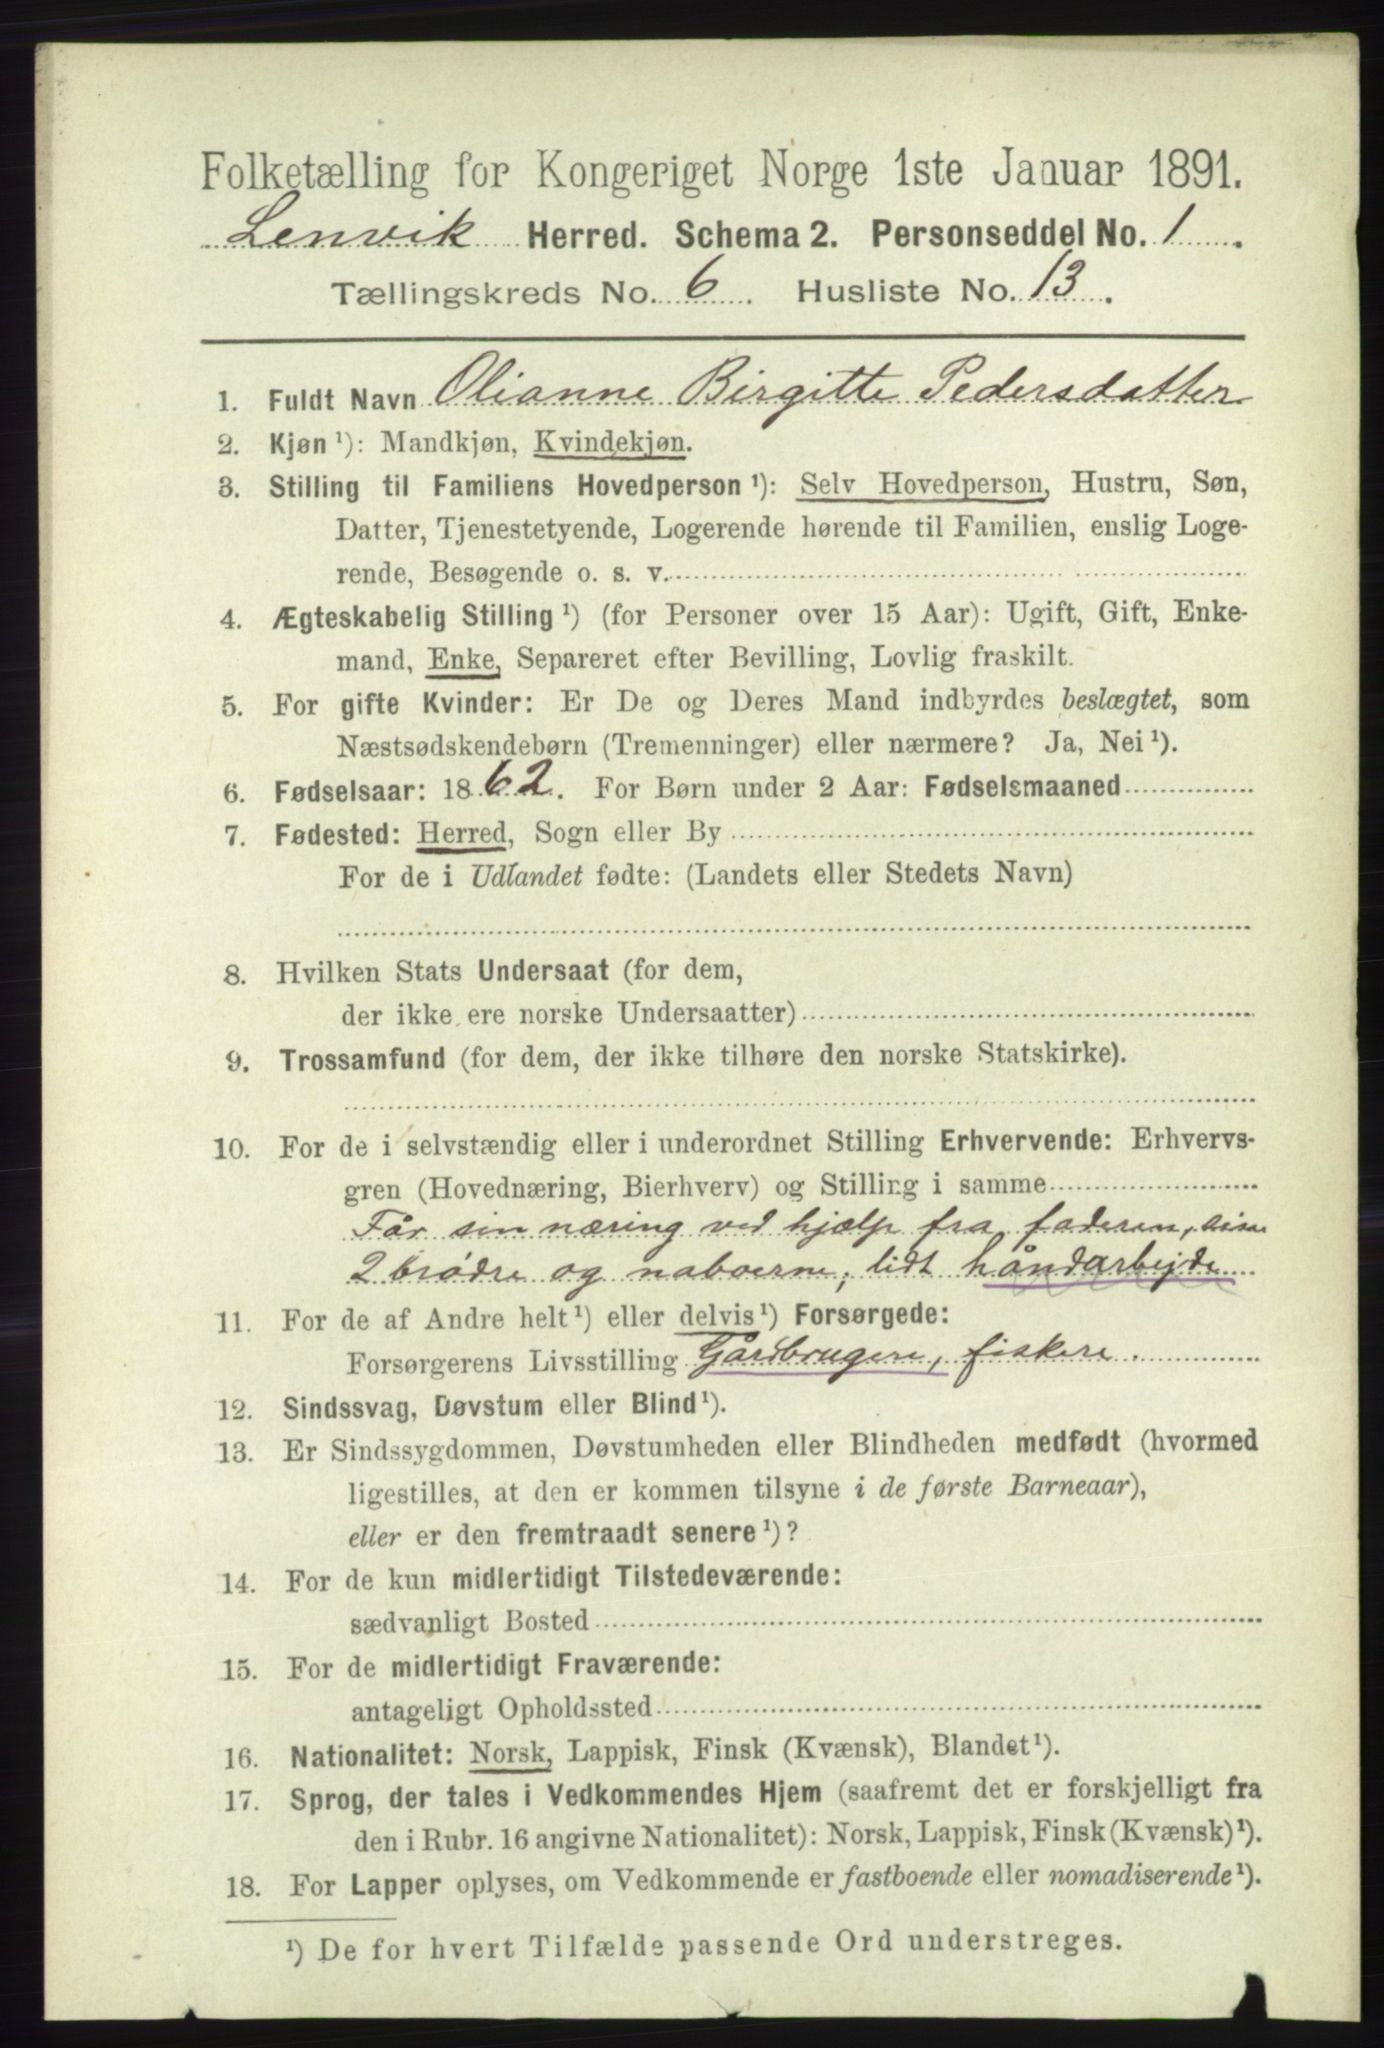 Folketælling for Kongeriget Norge 1ste Januar 1891.
Lenvik Herred. Schema 2. Personseddel No. 1.
Tællingskreds No. 6. Husliste No. 13.
1. Fuldt Navn Olianne Birgitte Pedersdatter
2. Kjøn ¹): Mandkjøn, Kvindekjøn.
3. Stilling til Familiens Hovedperson ¹): Selv Hovedperson, Hustru, Søn,
Datter, Tjenestetyende, Logerende hørende til Familien, enslig Loge-
rende, Besøgende o. s. v.
4. Ægteskabelig Stilling ¹) (for Personer over 15 Aar): Ugift, Gift, Enke-
mand, Enke, Separeret efter Bevilling, Lovlig fraskilt.
5. For gifte Kvinder: Er De og Deres Mand indbyrdes beslægtet, som
Næstsødskendebørn (Tremenninger) eller nærmere? Ja, Nei ¹).
6. Fødselsaar: 1862. For Børn under 2 Aar: Fødselsmaaned
7. Fødested: Herred, Sogn eller By
For de i Udlandet fødte: (Landets eller Stedets Navn)
8. Hvilken Stats Undersaat (for dem,
der ikke ere norske Undersaatter)
9. Trossamfund (for dem, der ikke tilhøre den norske Statskirke).
10. For de i selvstændig eller i underordnet Stilling Erhvervende: Erhvervs-
gren (Hovednæring, Bierhverv) og Stilling i samme
Får sin næring ved hjælp fra faderen,
2 brødre og naboerne, lidt håndarbejde
11. For de af Andre helt ¹) eller delvis ¹) Forsørgede:
Forsørgerens Livsstilling Gårdbrugere, fiskere.
12. Sindssvag, Døvstum eller Blind ¹).
13. Er Sindssygdommen, Døvstumheden eller Blindheden medfødt (hvormed
ligestilles, at den er kommen tilsyne i de første Barneaar),
eller er den fremtraadt senere ¹)?
14. For de kun midlertidigt Tilstedeværende:
sædvanligt Bosted
15. For de midlertidigt Fraværende:
antageligt Opholdssted
16. Nationalitet: Norsk, Lappisk, Finsk (Kvænsk), Blandet ¹).
17. Sprog, der tales i Vedkommendes Hjem (saafremt det er forskjelligt fra
den i Rubr. 16 angivne Nationalitet): Norsk, Lappisk, Finsk (Kvænsk) ¹).
18. For Lapper oplyses, om Vedkommende er fastboende eller nomadiserende ¹).
¹) De for hvert Tilfælde passende Ord understreges.